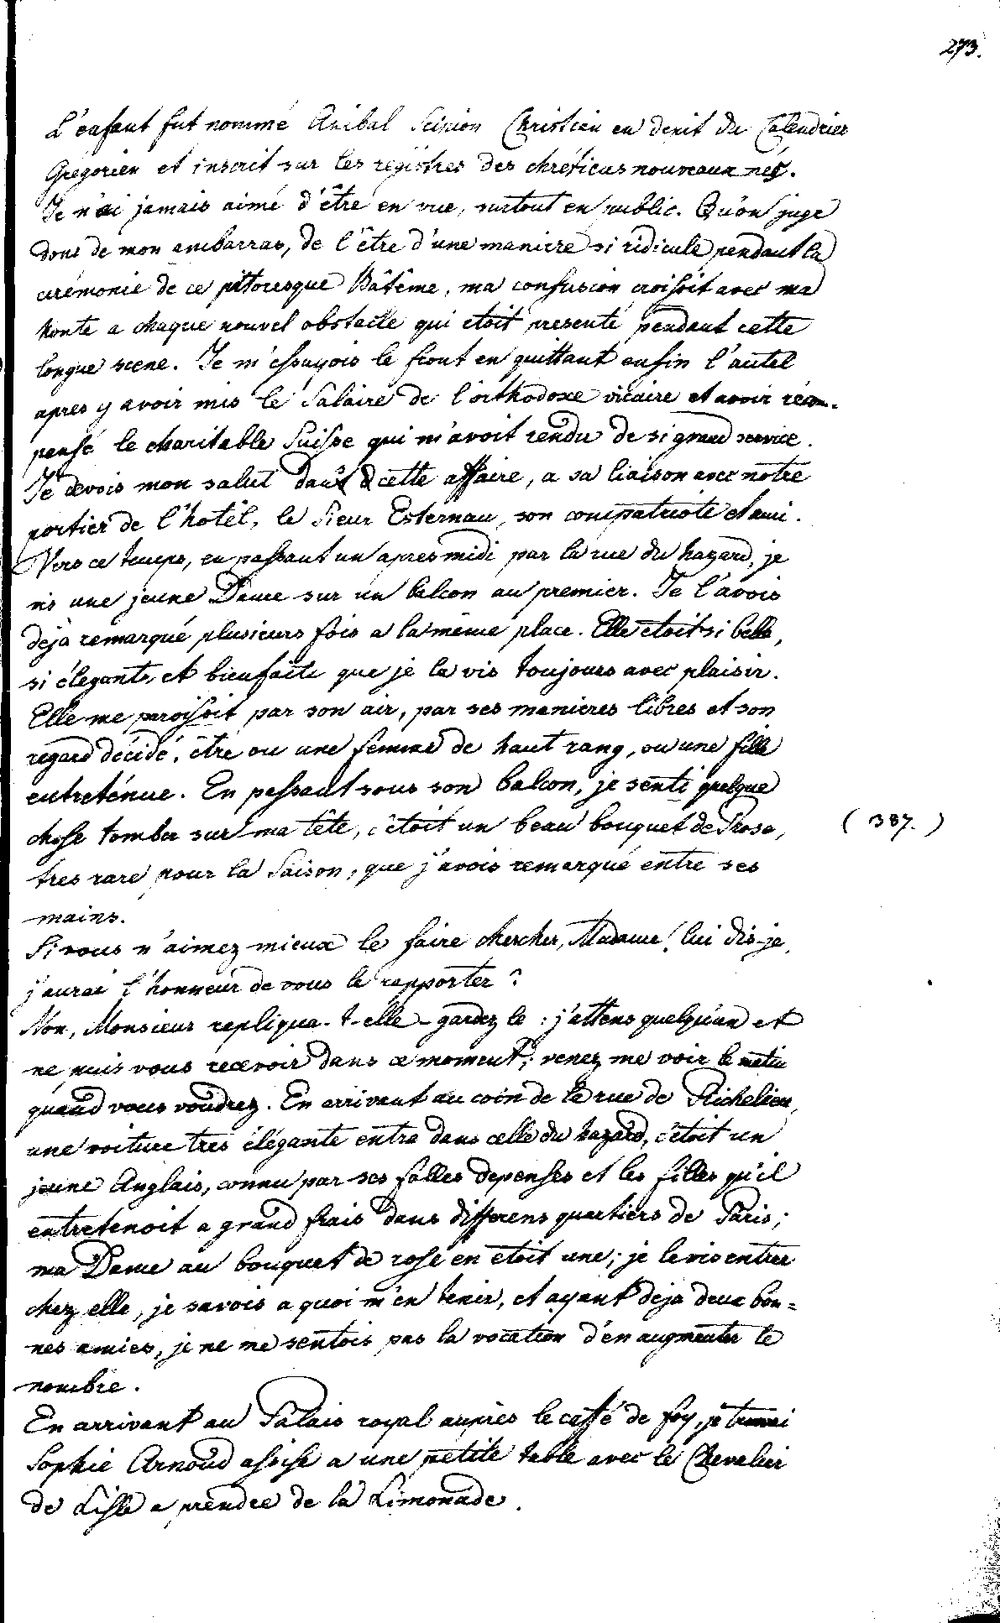 273.
L'enfant fut nommé Anibal Scipion Chrétien en depit du Calendrier
Grégorien et inscrit sur les régistres des chrétiens nouveaux nés.
Je n'ai jamais aimé d'être en vue, surtout en public. Qu'on juge
donc de mon embarras, de l'être d'une maniere si ridicule pendant la
cérémonie de ce pitoresque Bâtême, ma confusion croissoit avec ma
honte a chaque nouvel obstacle qui etoit presenté pendant cette
longue scene. Je m'essuyois le front en quittant enfin l'autel
apres y avoir mis le Salaire de l'orthodoxe vicaire et avoir récom-
pensé le charitable Suisse qui m'avoit rendu de si grand service.
Je devois mon salut dans cette affaire, a sa liaison avec notre
portier de l'hotel, le Sieur Esternau, son compatriote et ami.
Vers ce temps, en passant un apres midi par la rue du hazard, je
vis une jeune Dame sur un balcon au premier. Je l'avois
deja remarqué plusieurs fois a la même place. Elle etoit si belle,
si élegante et bienfaite que je la vis toujours avec plaisir.
Elle me paroissoit par son air, par ses manieres libres et son
regard décidé, être ou une femme de haut rang, ou une fille
entretenue. En passant sous son balcon, je senti quelque
chose tomber sur ma tête, c'étoit un beau bouquet de Rose,
(387.)
tres rare pour la Saison, que j'avois remarqué entre ses
mains.
Si vous n'aimez mieux le faire chercher, Madame! lui dis-je,
j'aurai l'honneur de vous le rapporter?
Non, Monsieur repliqua-t-elle - gardez le: j'attens quelqu'un et
ne puis vous recevoir dans ce moment; venez me voir le matin
quand vous voudrez. En arrivant au coin de la rue de Richelieu,
une voiture tres élégante entra dans celle du hazard, c'étoit un
jeune Anglais, connu par ses folles depenses et les filles qu'il
entretenoit a grand frais dans differens quartiers de Paris;
ma Dame au bouquet de rose en etoit une; je le vis entrer
chez elle, je savois a quoi m'en tenir, et ayant deja deux bon=
nes amies, je ne me sentois pas la vocation d'en augmenter le
nombre.
En arrivant au Palais royal aupres le caffé de foy, je trouvai
Sophie Arnoud assise a une petite table avec le Chevalier
de Lisle a prendre de la Limonade.